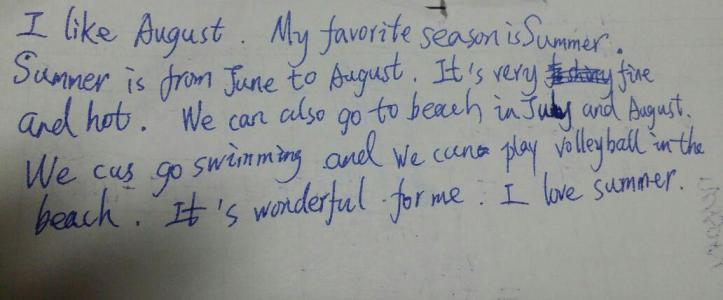 I like August. My favorite season is Summer.
Summer is from June to August. It's very fine
and hot. We can also go to beach in July and August.
We can go swimming and we can play volleyball in the
beach. It's wonderful for me. I love summer.